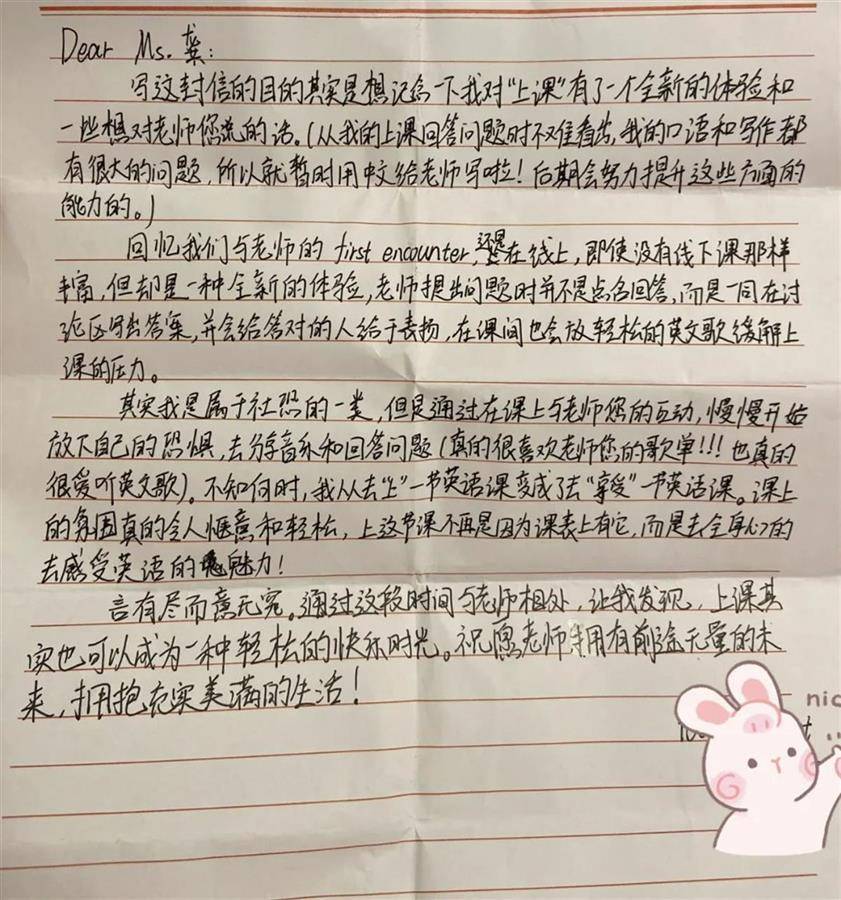 Dear Ms. 龚:
写这封信的目的其实是想记念一下我对“上课”有了一个全新的体验和
一些想对老师您说的话。(从我的上课回答问题时不难看出,我的口语和写作都
有很大的问题,所以就暂时用中文给老师写啦!后期会努力提升这些方面的
能力的。)
回忆我们与老师的 first encounter,还是在线上,即使没有线下课那样
丰富,但却是一种全新的体验,老师提出问题时并不是点名回答,而是一同在讨
论区写出答案,并会给答对的人给于表扬,在课间也会放轻松的英文歌缓解上
课的压力。
其实我是属于社恐的一类,但是通过在课上与老师您的互动,慢慢开始
放下自己的恐惧,去分享音乐和回答问题(真的很喜欢老师您的歌单!!!也真的
很爱听英文歌)。不知何时,我从去“上”一节英语课变成了去“享受”一节英语课。课上
的氛围真的令人惬意和轻松,上这节课不再是因为课表上有它,而是去全身心的
去感受英语的魅力!
言有尽而意无穷。通过这段时间与老师相处,让我发现,上课其
实也可以成为一种轻松的快乐时光。祝愿老师拥有前途无量的未
来,拥抱充实美满的生活!
nic